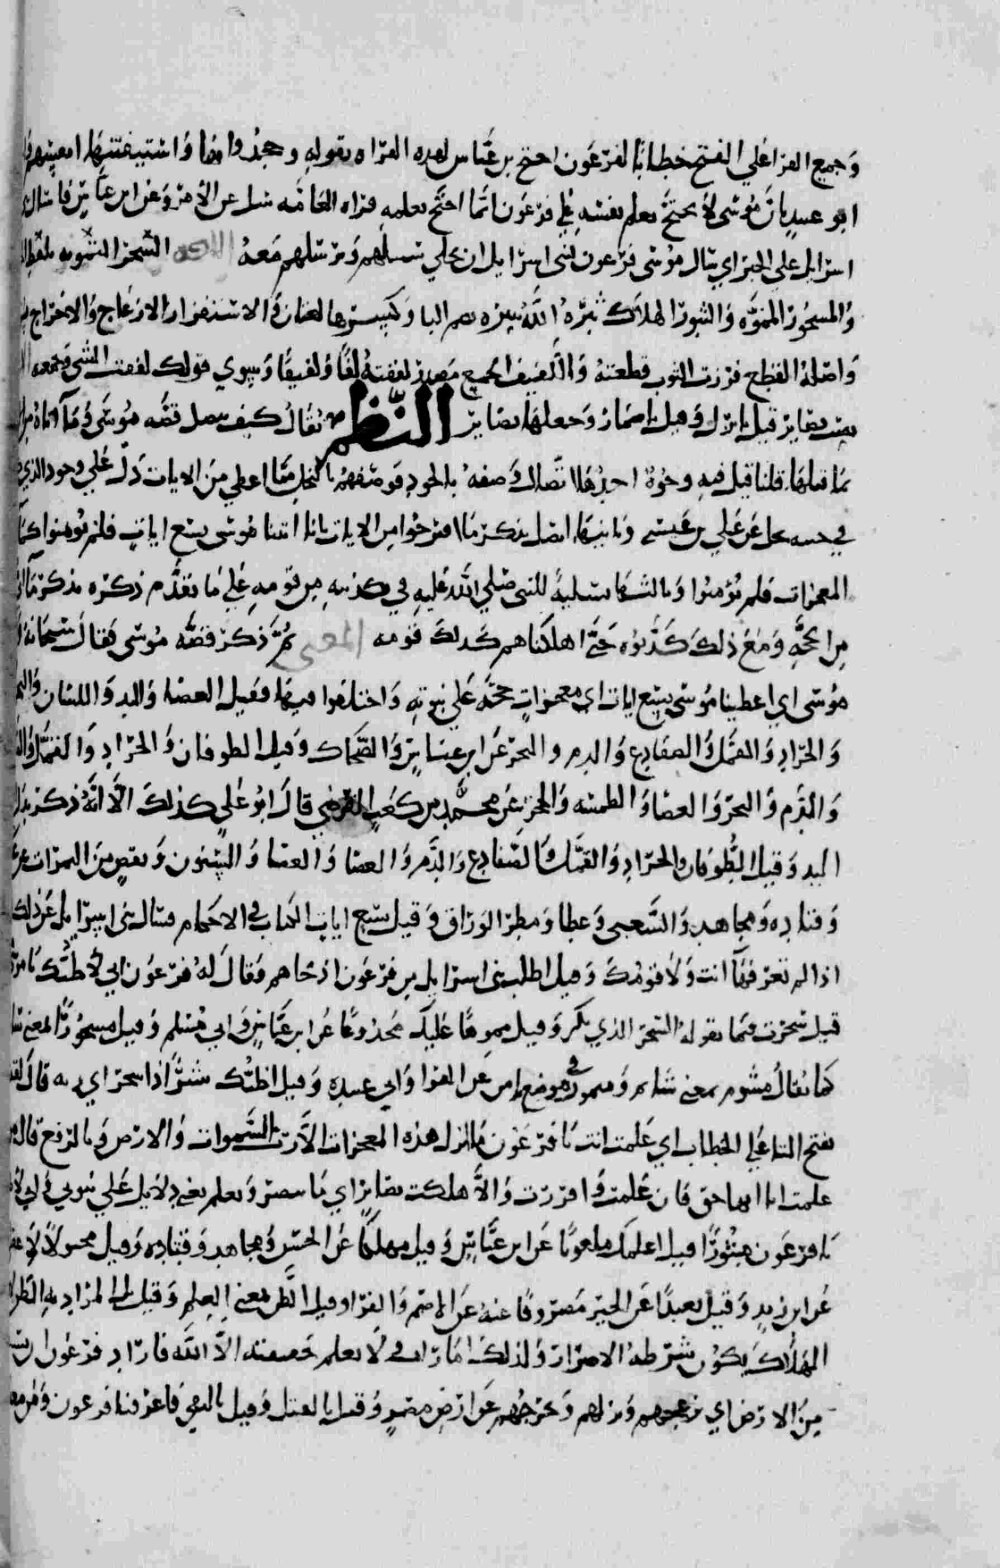 وجميع القرا على الفتح خطابا لفرعون احتج بن عباس لهذه القراه بقوله وجحدوا بها واستيقنتها انفسهم
ابو عبيد بان موسى لا يحتج بعلم نفسه على فرعون انما احتج بعلمه قراه العامه سل عن الامر وعن ابن عباس فاسال
اسرايل على الخبر اي سال موسى فرعون لبنى اسرايل ان يخلي سبيلهم ويرسلهم معه اللغه السحر التمويه
والمسحور المموه والثبور الهلاك ثبره الله يثبره بضم البا وكسرها لغتان والاستفزاز الازعاج والاخراج
واصله القطع فززت الثوب قطعته واللفيف الجميع مصدر لففته لفا ولفيفا وسوي قولك لففت الشي وجمعه
نصب بصاير قيل بانزل وقيل باضمار وجعلها بصاير النظم يقال كيف يتصل قصه موسى
بما قبلها قلنا قيل فيه وجوه احدها اتصال وصفه بالجود فوصفهم بالبخل مما اعطي من الايات دل على وجود الذي
عن علي بن عيسى وثانيها اتصل بذكر ما اقترحوا من الايات اتينا موسى بتسع ايات فلم يومنوا
المعجزات فلم يؤمنوا وثالثها تسلية للنبي صلى الله عليه في تكذيبه من قومه على ما تقدم ذكره بذكر
من الحجه ومع ذلك كذبوه حتى اهلكناهم كذلك قومه المعنى ثم ذكر قصه موسى فقال سبحانه
موسى اي اعطينا موسى بتسع ايات اي معجزات حجه على نبوته واختلفوا فيها فقيل العصا واليد واللسان والبحر
والجراد والقمل والضفادع والدم والبحر عن ابن عباس والضحاك وقيل الطوفان والجراد والقمل
والدم والبحر والعصا والطمسه والحجر عن محمد بن كعب القرظي قال ابو علي كذلك الا انه ذكر
اليد وقيل الطوفان والجراد والقمل والضفادع والدم والعصا والعصا والسنون ونقص من الثمرات
وقتاده ومجاهد والشعبى وعطا ومطر الوراق وقيل تسع ايات الكتاب في الاحكام فسال بنى اسرايل عن ذلك
اذا لم تعرفها انت ولا قومك وقيل اطلب بنى اسرايل من فرعون اذ جاهم فقال له فرعون اني لاظنك
قيل سحرت فما تقوله السحر الذي بك وقيل مموها عليك مخدوعا عن ابن عباس وابي مسلم وقيل مسحورا بمعنى
كما يقال مشوم بمعنى شايم وميمون في موضع يامن عن الفرا وابي عبيده وقيل اظنك بشرا ذا سحر اي
بفتح التا على الخطاب اي علمت انت يا فرعون ما انزل هذه المعجزات الا رب السموات والارض وبالرفع
علمت انا انها حق فان علمت واقررت والا هلكت بصاير اي ما يبصر ويعلم يعني دلايل على نبوتي
يا فرعون مثبورا قيل اعلمك ملعونا عن ابن عباس وقيل مهلكا عن الحسن ومجاهد وقتاده وقيل مخبولا
عن ابن زيد وقيل بعيدا عن الخير مصروفا عنه عن الاصم والفرا وقيل الظن بمعنى العلم وقيل بل المراد به الظن
الهلاك يكون بشرطه الاصرار ولذلك امارات لا يعلم حقيقته الا الله فاراد فرعون ان
من الارض اي يزعجهم ويخرجهم عن ارض مصر وقيل بالقتل وقيل بالنفي فاغرقنا فرعون ومن معه